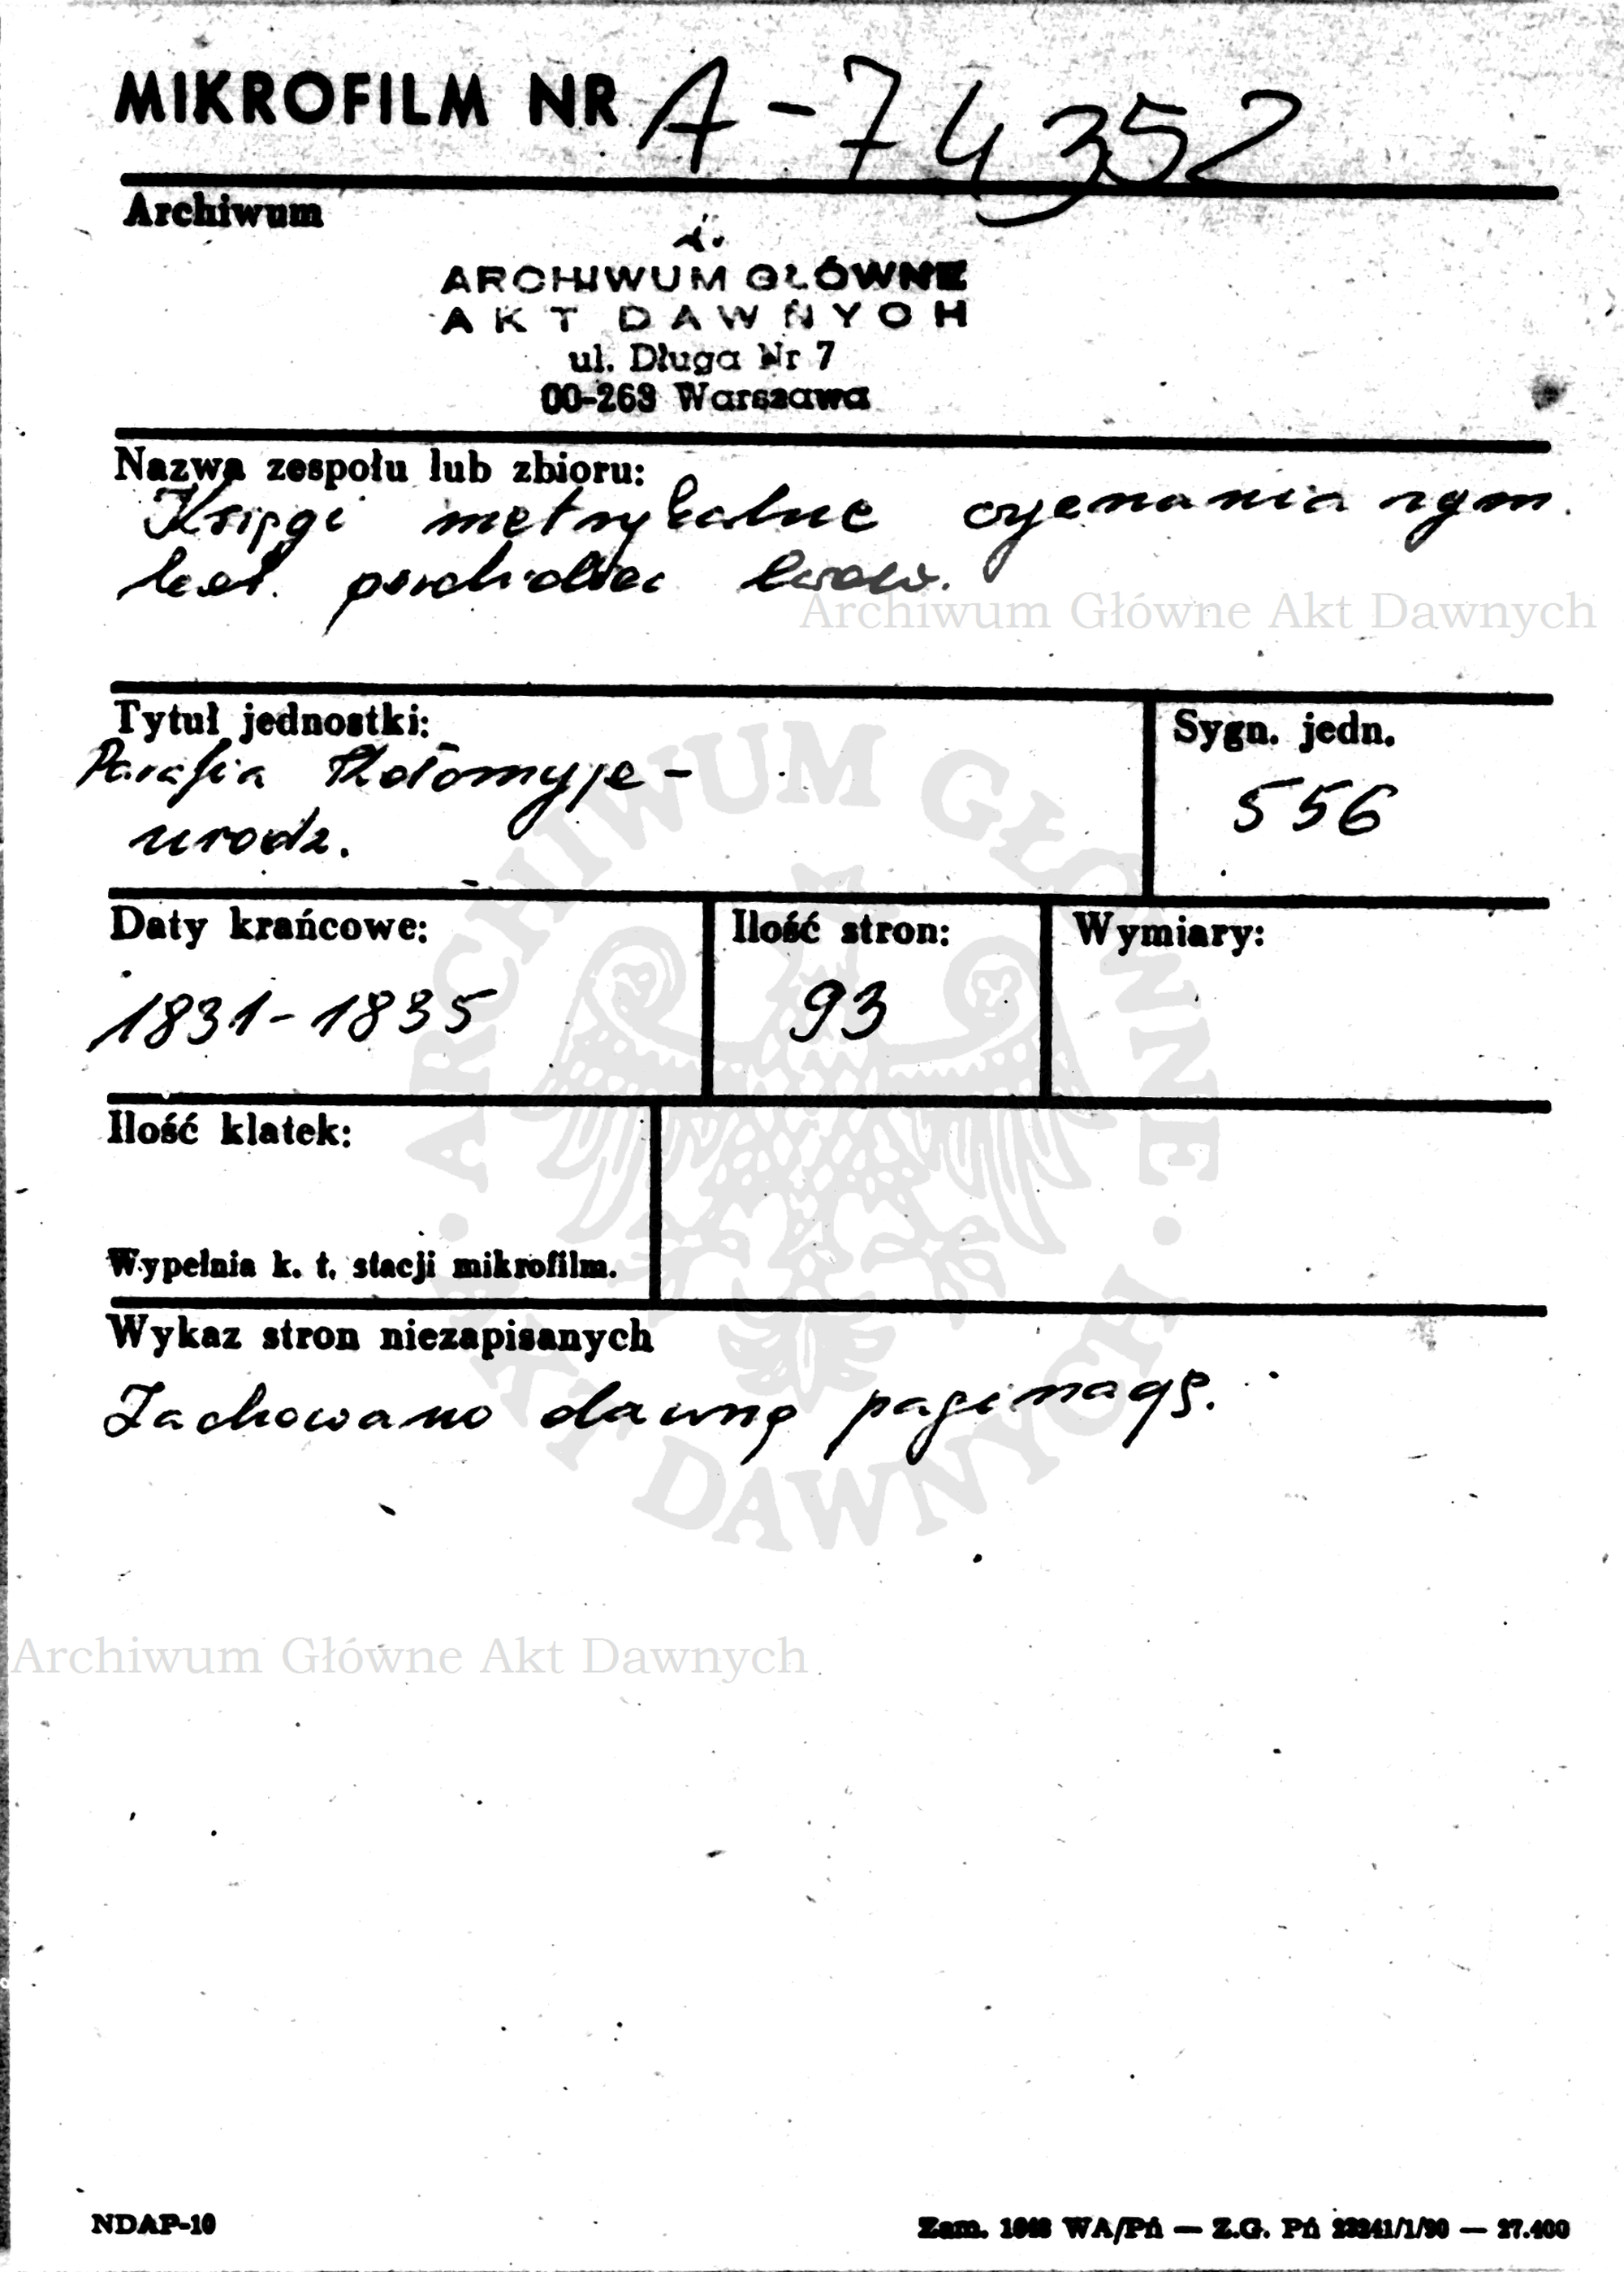 MIKROFILM NR A-74352
Archiwum
ARCHIWUM GŁÓWNE
AKT DAWNYCH
ul. Długa Nr 7
00-263 Warszawa
Nazwa zespołu lub zbioru:
Księgi metrykalne rzym.
kat.
Archiwum Główne Akt Dawnych
Tytuł jednostki:
Parafia Kołomyje -
urodz.
Sygn. jedn.
556
Daty krańcowe:
1831-1835
Ilość stron:
93
Wymiary:
Ilość klatek:
Wypełnia k. t. stacji mikrofilm.
Wykaz stron niezapisanych
Zachowano dawną paginację.
ARCHIWUM GŁÓWNE AKT DAWNYCH
Archiwum Główne Akt Dawnych
NDAP-10
Zam. WA/Pń — Z.G. Pń — 27.400